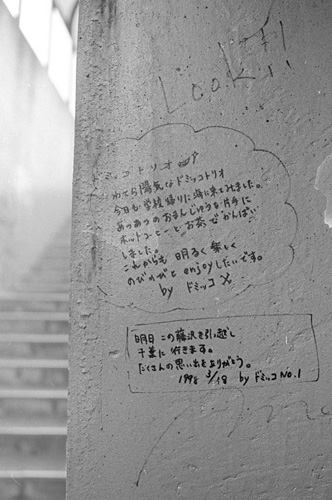 Look!!
ドミッコトリオ
われら陽気なドミッコトリオ
今日も学校帰りに海に来てみました。
あつあつのおまんじゅうを片手に
ホットコーヒーとお茶でかんぱい
しました。
これからも 明るく 楽しく
のびのびと enjoyしたいです。
by ドミッコ
明日 この藤沢を引っ越し
千葉に 行きます。
たくさんの思い出をありがとう。
1998 3/18 by ドミッコ No.1